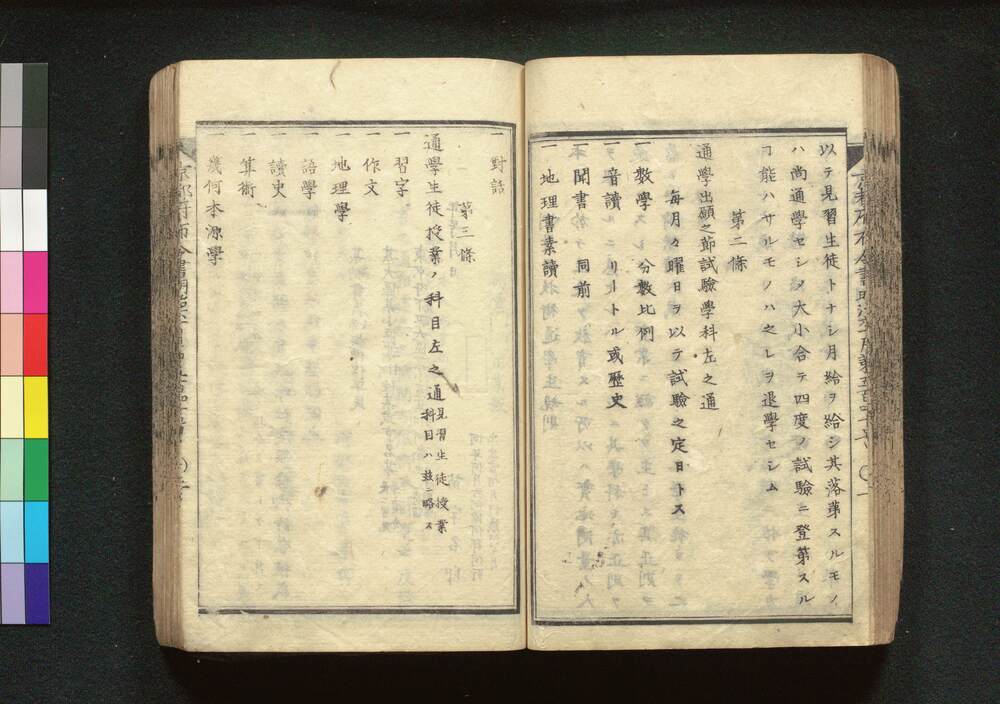 以テ見習生徒トナシ月給ヲ給シ其落第スルモノ
ハ尚通學セシメ大小合テ四度ノ試驗ニ登第スル
ヿ能ハサルモノハ之レヲ退學セシム
第二條
通學出願之節試驗學科左之通
毎月々曜日ヲ以テ試驗之定日トス
一數學 分數比例
一音讀 リートル或歴史
一聞書 同前
一地理書素讀
一對話
第三條
通學生徒授業ノ科目左之通
見習生徒授業
科目ハ茲ニ略ス
一習字
一作文
一地理學
一語學
一讀史
一算術
一幾何本源學